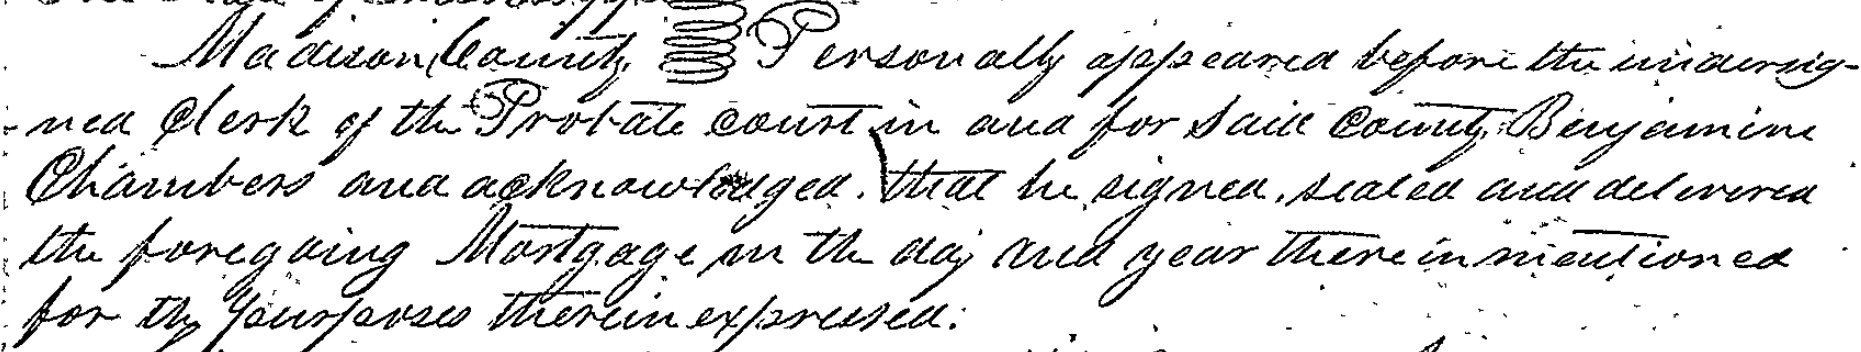 The State of Mississippi
Madison County Personally appeared before the undersig-
-ned Clerk of the Probate court in and for said county Benjamin
Chambers and acknowledged. that he signed, sealed and delivered
the foregoing Mortgage on the day and year therein mentioned
for the purposes therein expressed.